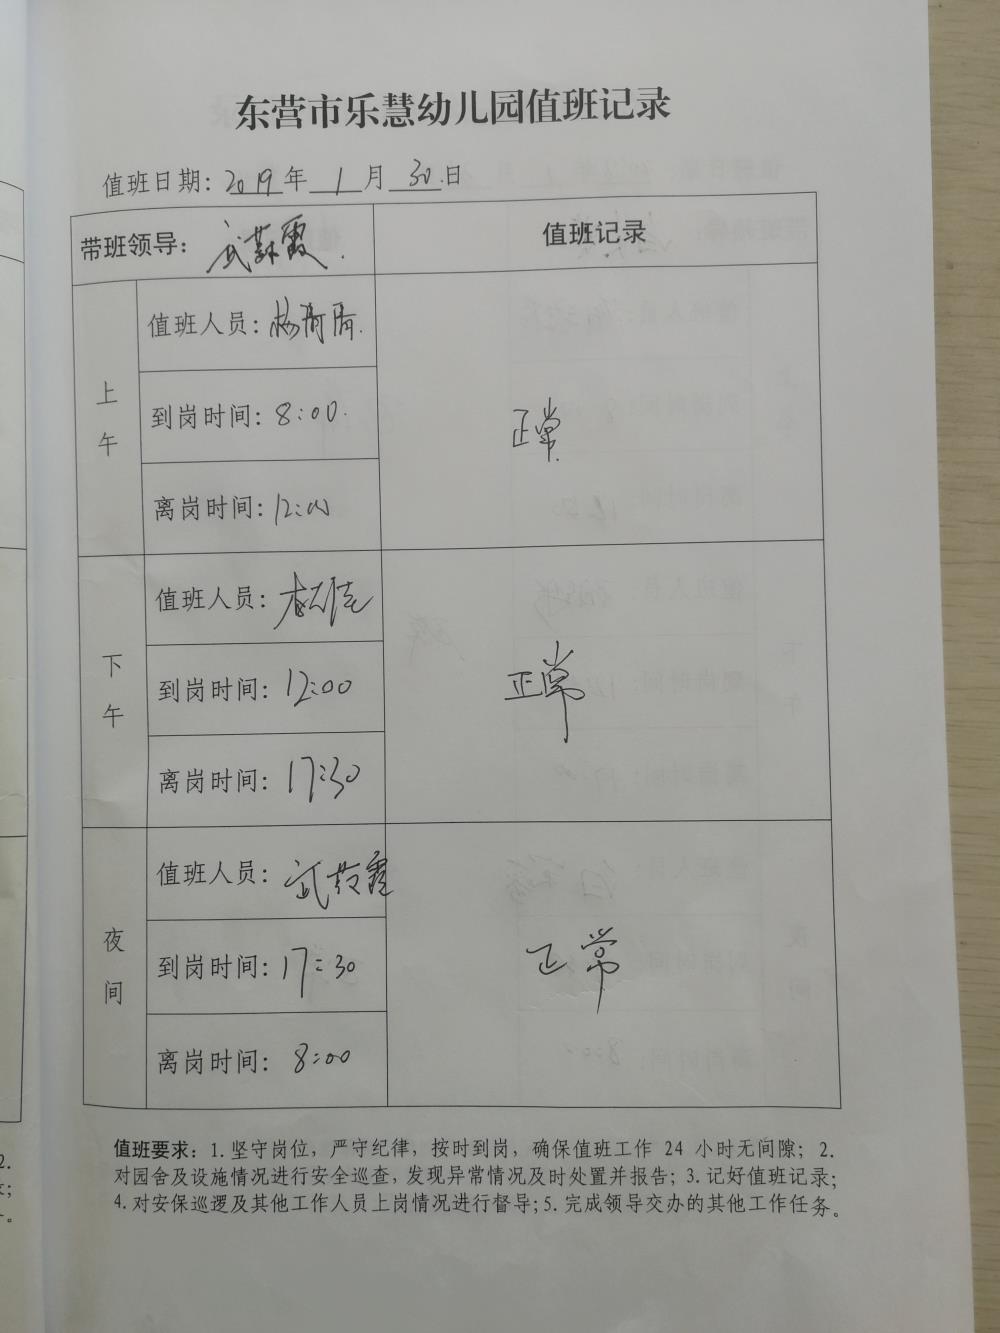 东营市乐慧幼儿园值班记录
值班日期：2019年 1 月 30 日
带班领导：武 霞
值班记录
上午
值班人员：杨
到岗时间：8:00
离岗时间：12:00
正常
下午
值班人员：
到岗时间：12:00
离岗时间：17:30
正常
夜间
值班人员：武 霞
到岗时间：17:30
离岗时间：8:00
正常
值班要求：1. 坚守岗位，严守纪律，按时到岗，确保值班工作 24 小时无间隙；2.
对园舍及设施情况进行安全巡查，发现异常情况及时处置并报告；3. 记好值班记录；
4. 对安保巡逻及其他工作人员上岗情况进行督导；5. 完成领导交办的其他工作任务。